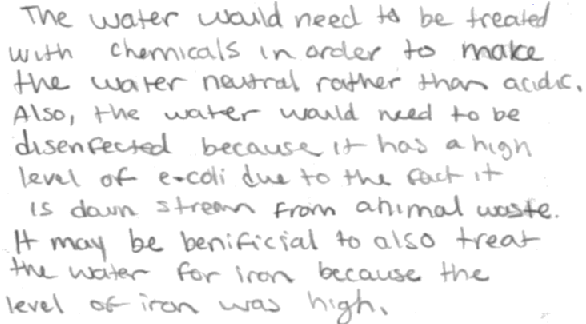 The water would need to be treated
with chemicals in order to make
the water neutral rather than acidic.
Also, the water would need to be
disenfected because it has a high
level of e-coli due to the fact it
is down stream from animal waste.
It may be benificial to also treat
the water for iron because the
level of iron was high.